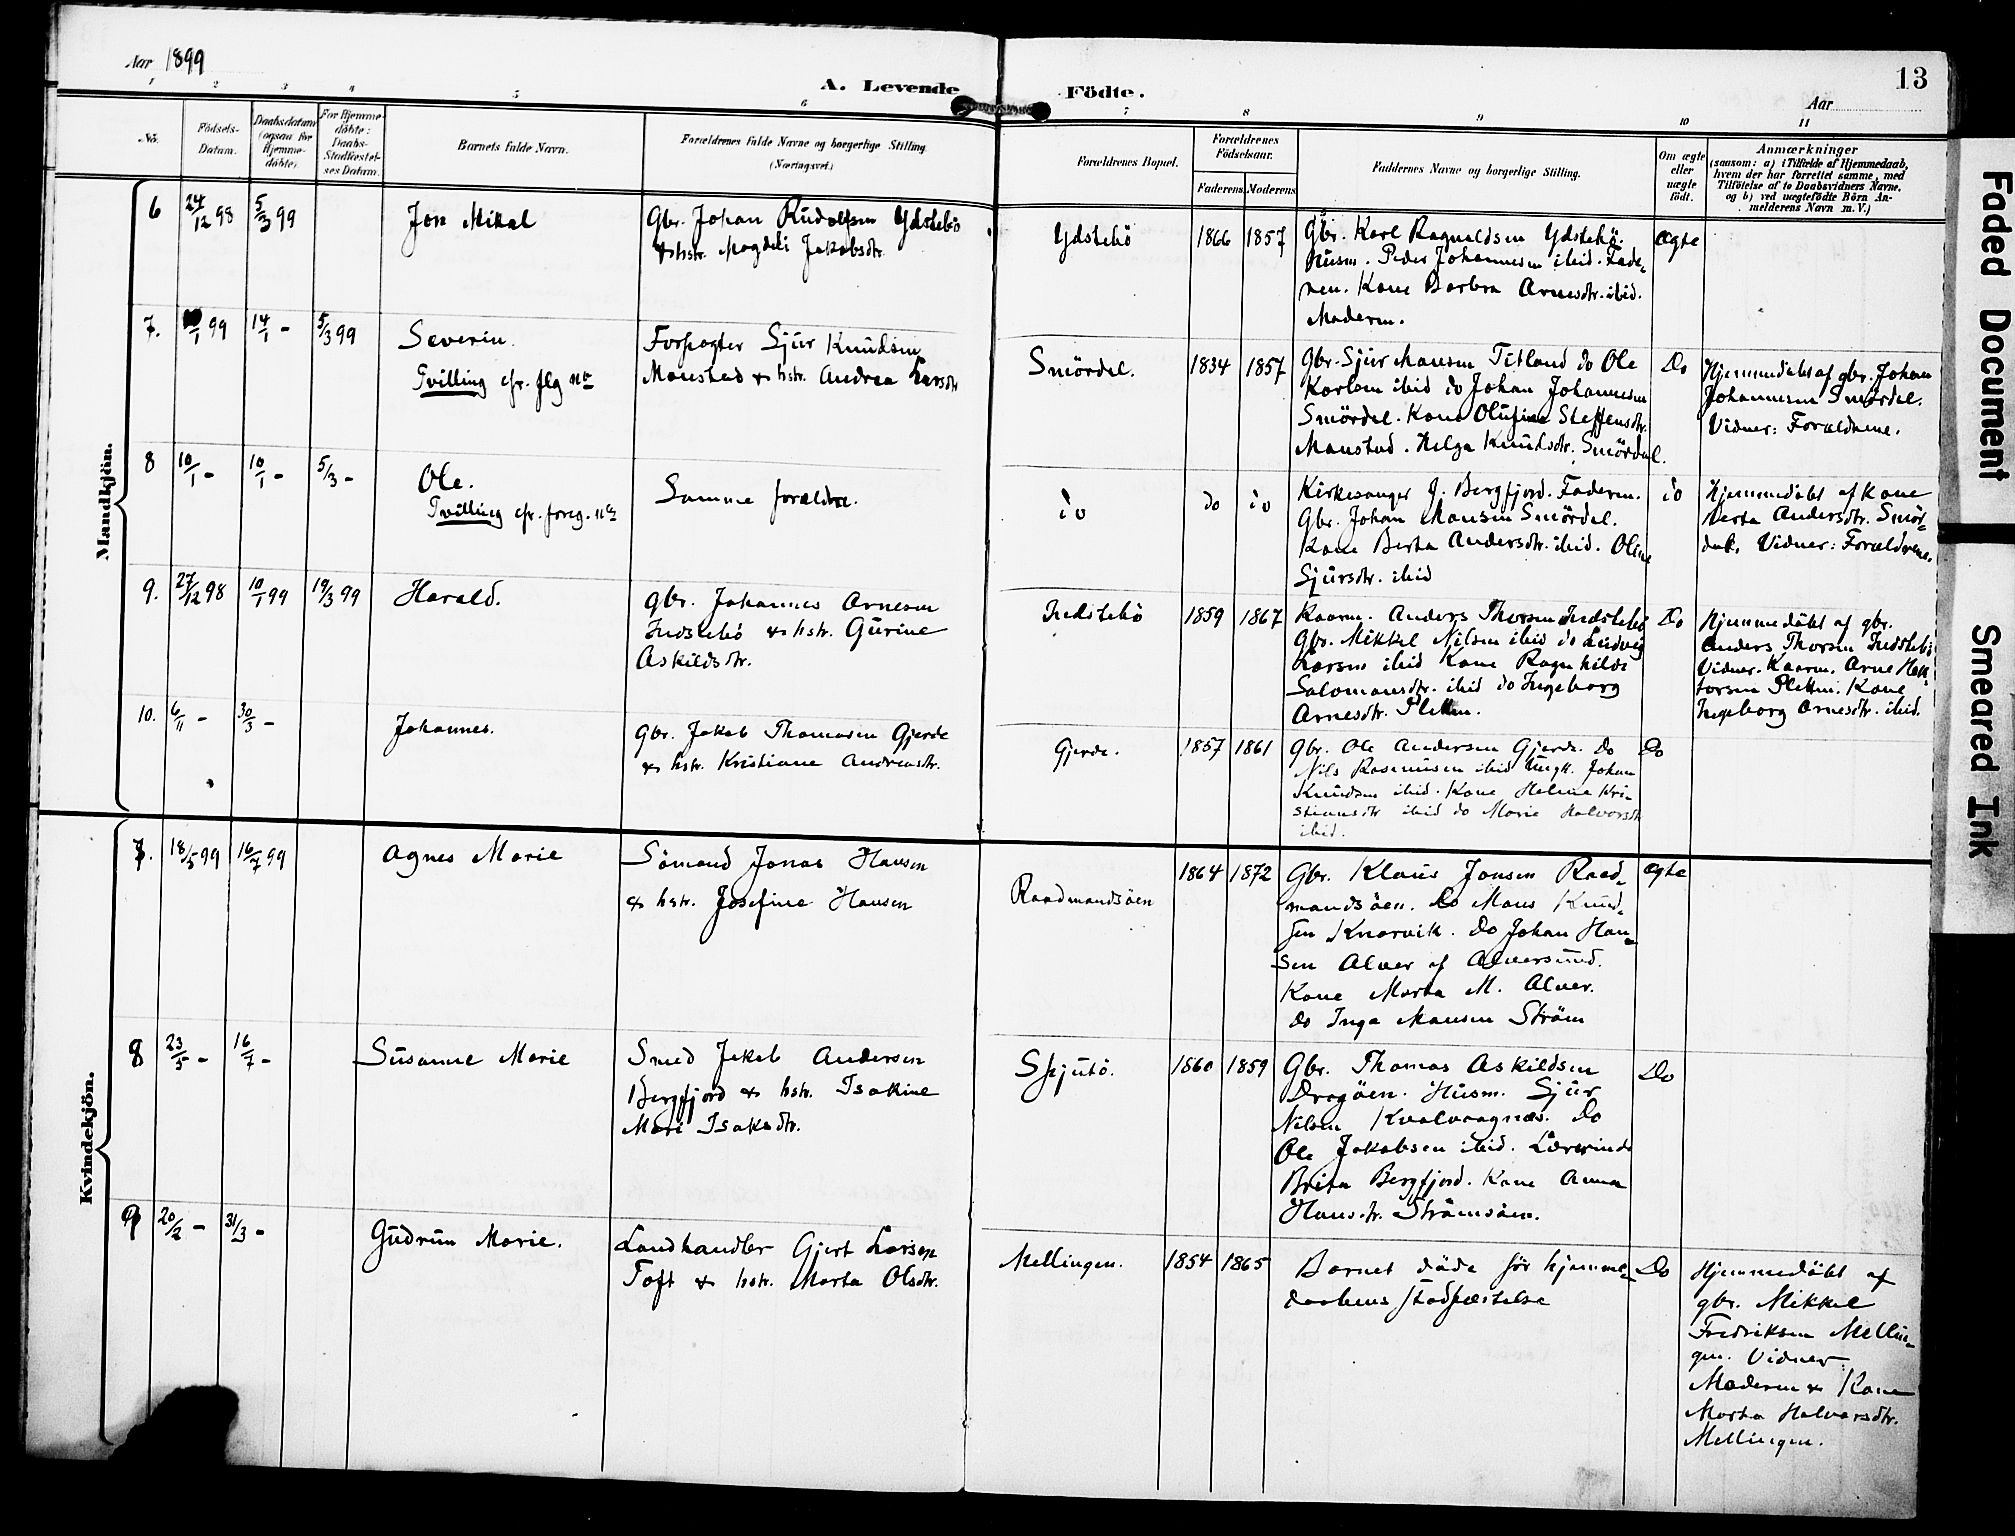 Aar 1899
A. Levende Födte.
13
Aar
1 2 3 4 5 6 7 8 9 10 11
No.
Födsels-
Datum.
Daabsdatum
(ogsaa for
Hjemme-
döbte).
For Hjemme-
döbte:
Daabs-
Stadfæstel-
ses Datum.
Barnets fulde Navn.
Forældrenes fulde Navne og borgerlige Stilling
(Næringsvei.)
Forældrenes Bopæl.
Forældrenes
Födselsaar.
Faderens Moderens
Faddernes Navne og borgerlige Stilling.
Om ægte
eller
uægte
födt.
Anmærkninger
(saasom: a) i Tilfælde af Hjemmedaab,
hvem der har forrettet samme, med
Tilföielse af to Daabsvidners Navne,
og b) ved uægtefödte Börn An-
melderens Navn m. V.)
Mandkjön.
6 24/12 98 5/3 99
Jon Mikal
Gbr. Johan Rudolfsen Ydstebö
& hstr. Magdeli Jakobsdtr.
Ydstebö
1866 1857
Gbr. Karl Ragnaldsen Ydstebö.
Husm. Peder Johannesen ibid. Fade-
ren. Kone Barbra Arnesdtr. ibid.
Moderen.
ægte
7. /1 99 14/1 - 5/3 99
Severin.
Tvilling cfr. flg nr
Forpagter Sjur Knudsen
Monstad & hstr. Andrea Larsdtr
Smördal.
1834 1857
Gbr. Sjur Monsen Titland do Ole
Karlsen ibid do Johan Johannesen
Smördal. Kone Olufine Steffensdtr.
Monstad. Helga Knudsdtr. Smördal.
Do
Hjemmedöbt af gbr. Johan
Johannesen Smördal.
Vidner: Forældrene.
8 10/1 - 10/1 - 5/3 -
Ole.
Tvilling cfr. foreg. nr
Samme forældre.
do
do do
Kirkesanger J. Bergfjord. Faderen.
Gbr. Johan Monsen Smördal.
Kone Berta Andersdtr. ibid. Oline
Sjursdtr. ibid
do
Hjemmedöbt af Kone
Berta Andersdtr. Smör-
dal. Vidner: Forældrene.
9. 27/12 98 10/1 99 19/3 99
Harald.
Gbr. Johannes Arnesen
Indstebö & hstr. Gurine
Askildsdtr.
Indstebö
1859 1867
Kaarm. Anders Thorsen Indstebö
Gbr. Mikkel Nilsen ibid do Ludvig
Larsen ibid Kone Ragnhilde
Salomonsdtr. ibid do Ingeborg
Arnesdtr. Pletten.
Do
Hjemmedöbt af gbr.
Anders Thorsen Indstebö
Vidner. Kaarm. Arne Hek-
torsen Pletten. Kone
Ingeborg Arnesdtr. ibid.
10. 6/11 - 30/3 -
Johannes.
Gbr. Jakob Thomasen Gjerde
& hstr. Kristiane Andreasdtr.
Gjerde.
1857 1861
Gbr. Ole Andersen Gjerde. Do
Nils Rasmusen ibid Ungk. Johan
Knudsen ibid. Kone Heline Kri-
stiansdtr ibid do Marie Halvorsdtr
ibid.
Do
Kvindekjön.
7. 18/5 99 16/7 99
Agnes Marie
Sömand Jonas Hansen
& hstr. Josefine Hansen
Raadmandsöen
1864 1872
Gbr. Klaus Jonsen Raad-
mandsöen. Do Mons Knud-
sen Knarvik. Do Johan Han-
sen Alver af Alversund.
Kone Marta M. Alver.
do Inga Monsen Ström
ægte
8 23/5 - 16/7 -
Susanne Marie
Smed Jakob Andersen
Bergfjord & hstr. Isakine
Mari Isaksdtr.
Spjutö.
1860 1859
Gbr. Thomas Askildsen
Dragöen. Husm. Sjur
Nilsen Kvalvaagnæs. Do
Ole Jakobsen ibid. Lærerinde
Brita Bergfjord. Kone Anna
Hansdtr. Strömsöen.
Do
9 20/2 - 31/3 -
Gudrun Marie.
Landhandler Gjert Larsen
Toft & hstr. Marta Olsdtr.
Mellingen.
1854 1865
Barnet döde för hjemme-
daabens stadfæstelse
Do
Hjemmedöbt af
gbr. Mikkel
Fredriksen Mellin-
gen. Vidner:
Moderen & Kone
Marta Halvorsdtr.
Mellingen.
Faded Document
Smeared Ink